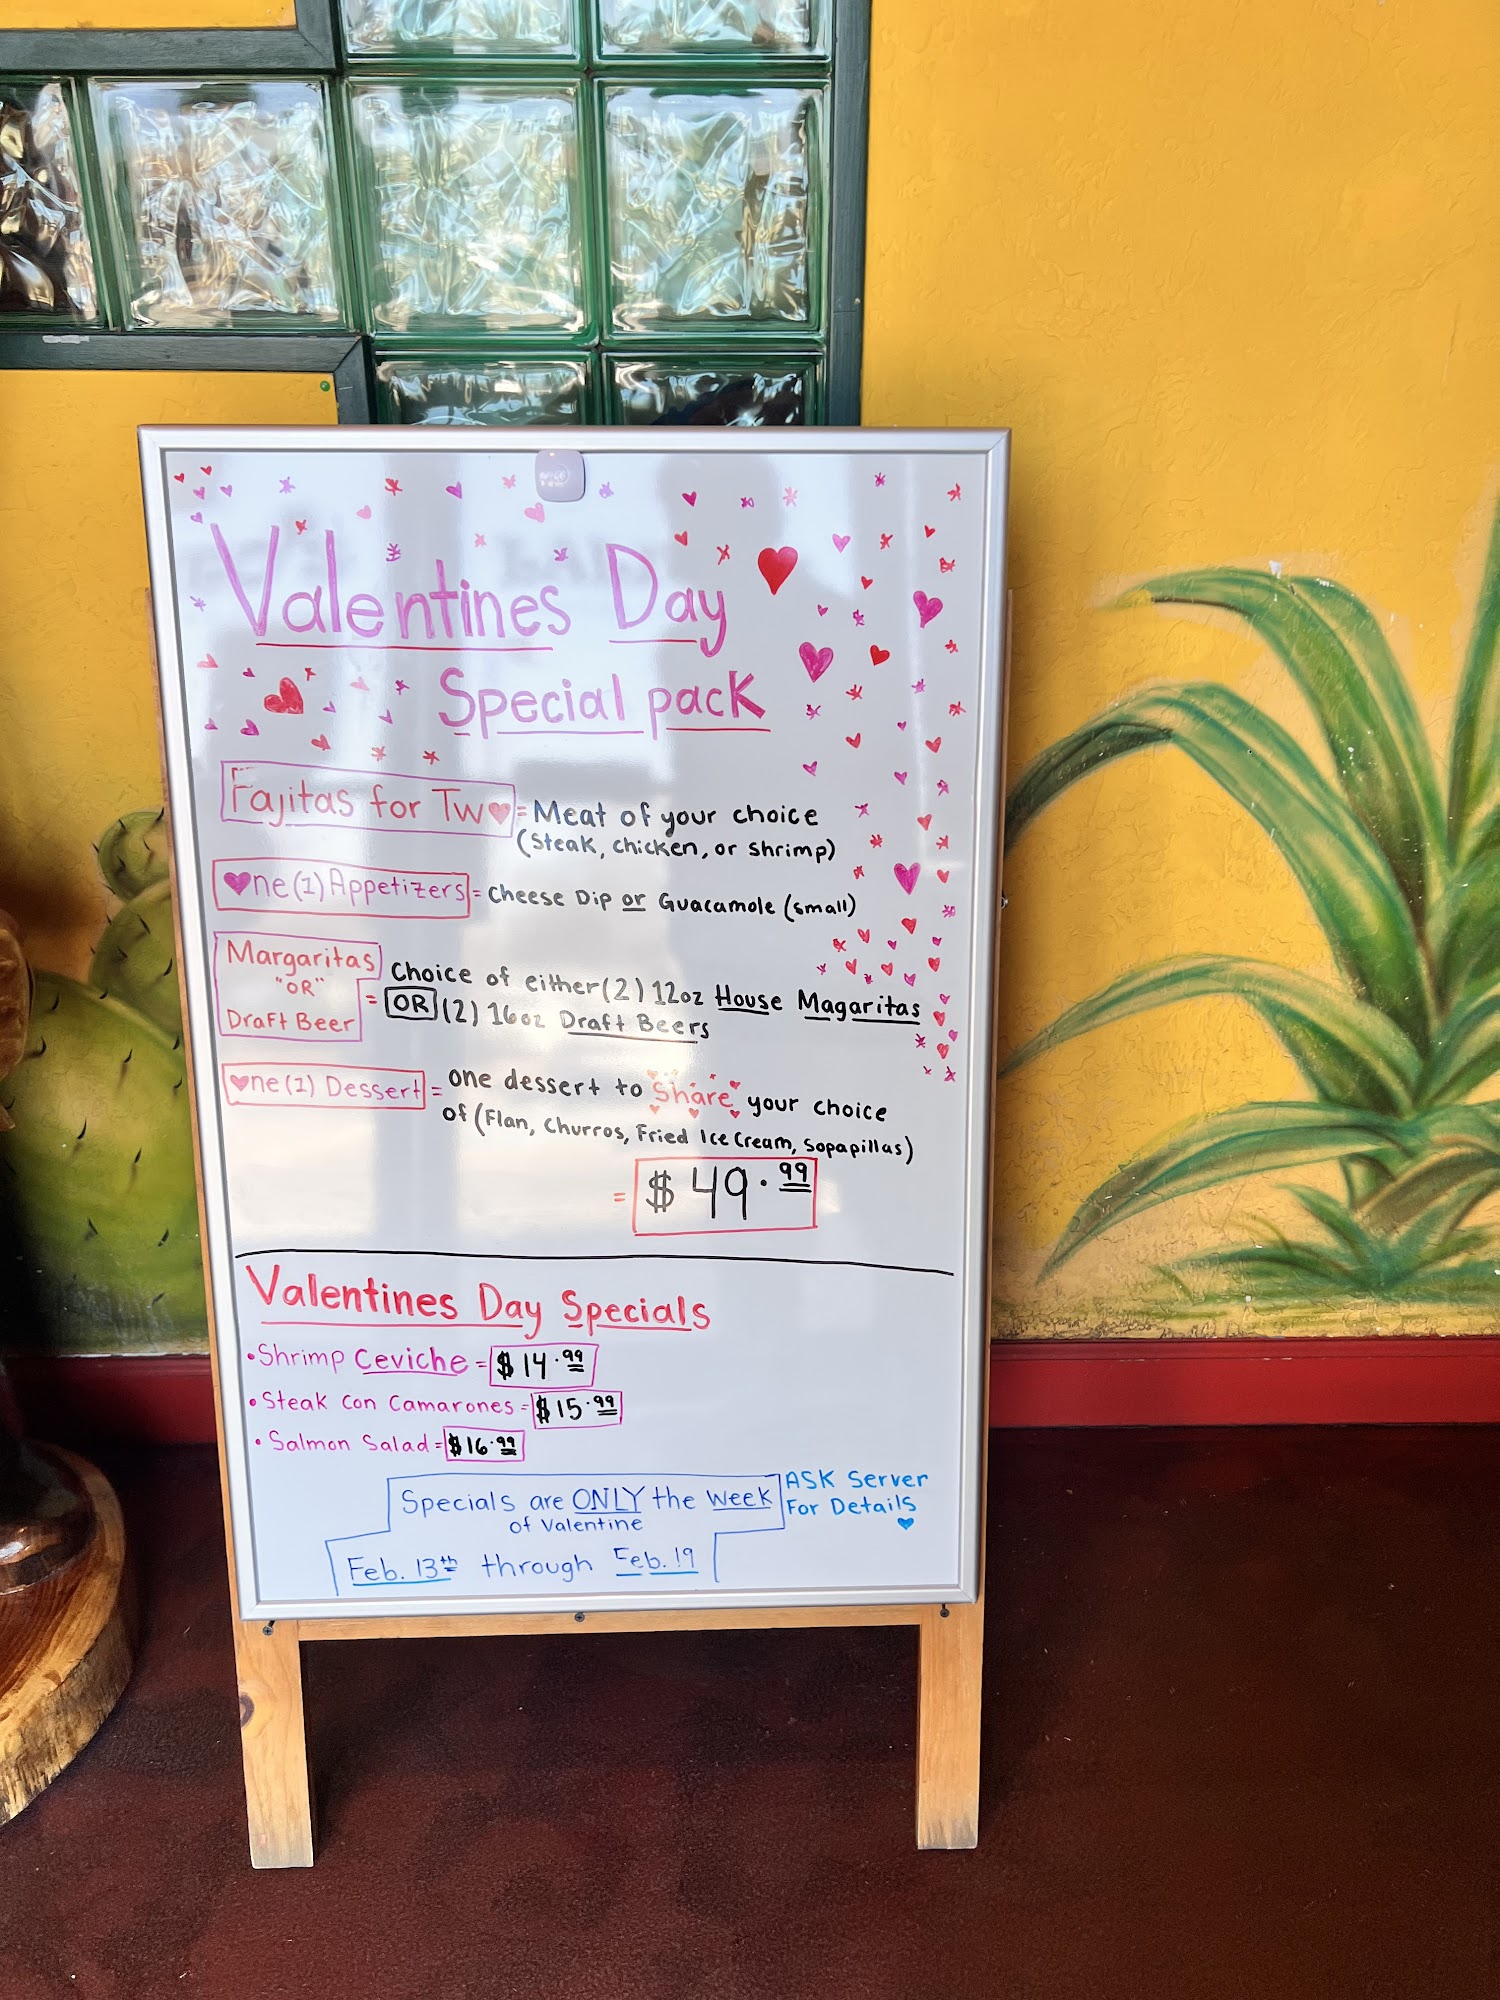 Valentines Day
Special pack
Fajitas for Tw♥ = Meat of your choice
(Steak, chicken, or shrimp)
♥ne (1) Appetizers = Cheese Dip or Guacamole (small)
Margaritas
"OR"
Draft Beer
= Choice of either (2) 12oz House Magaritas
OR (2) 16oz Draft Beers
♥ne (1) Dessert = one dessert to share your choice
of (Flan, Churros, Fried Ice Cream, Sopapillas)
= $49.99
Valentines Day Specials
• Shrimp Ceviche = $14.99
• Steak con Camarones = $15.99
• Salmon Salad = $16.99
Specials are ONLY the week
of Valentine
Feb. 13th through Feb. 19
ASK Server
For Details